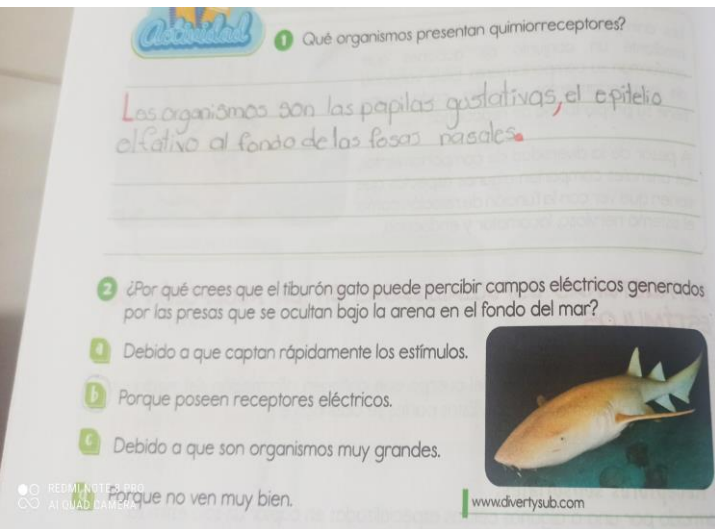 Actividad
1 Qué organismos presentan quimiorreceptores?
Los organismos son las papilas gustativas, el epitelio
olfativo al fondo de las fosas nasales.
2 ¿Por qué crees que el tiburón gato puede percibir campos eléctricos generados
por las presas que se ocultan bajo la arena en el fondo del mar?
a Debido a que captan rápidamente los estímulos.
b Porque poseen receptores eléctricos.
c Debido a que son organismos muy grandes.
d Porque no ven muy bien.
www.divertysub.com
REDMI NOTE 8 PRO
AI QUAD CAMERA